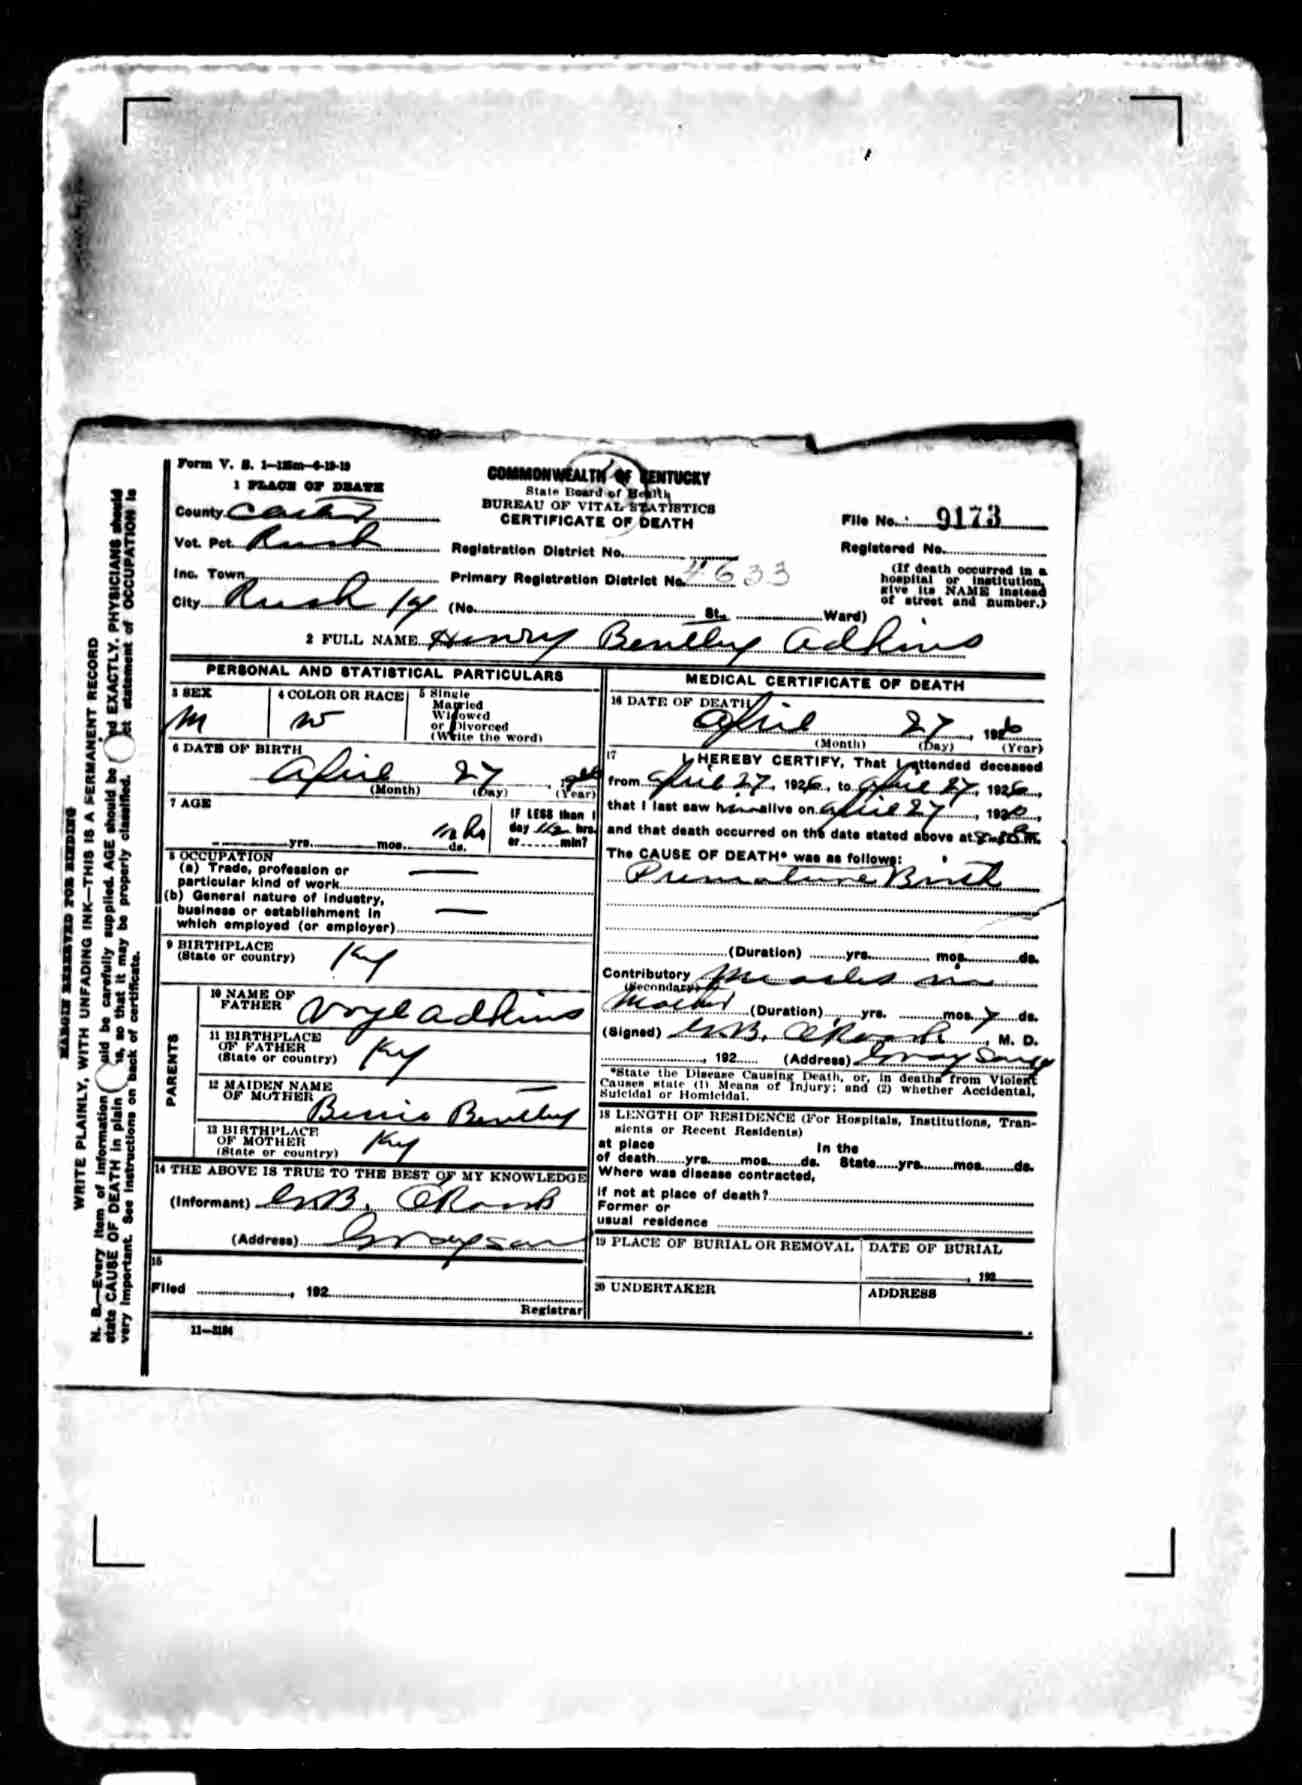 Form V. S. 1—125m—6-19-19
COMMONWEALTH OF KENTUCKY
State Board of Health
BUREAU OF VITAL STATISTICS
CERTIFICATE OF DEATH
1 PLACE OF DEATH
County Carter
Vot. Pct. Rush
Inc. Town
City Rush Ky (No. St., Ward)
Registration District No.
Primary Registration District No. 4633
File No. 9173
Registered No.
(If death occurred in a
hospital or institution,
give its NAME instead
of street and number.)
2 FULL NAME Henry Bentley Adkins
PERSONAL AND STATISTICAL PARTICULARS
3 SEX
M
4 COLOR OR RACE
W
5 Single
Married
Widowed
or Divorced
(Write the word)
6 DATE OF BIRTH
April 27, 192
(Month) (Day) (Year)
7 AGE
yrs. mos. ds.
IF LESS than 1
day hrs.
or min?
8 OCCUPATION
(a) Trade, profession or
particular kind of work
(b) General nature of industry,
business or establishment in
which employed (or employer)
9 BIRTHPLACE
(State or country) Ky
PARENTS
10 NAME OF
FATHER Adkins
11 BIRTHPLACE
OF FATHER
(State or country) Ky
12 MAIDEN NAME
OF MOTHER Bentley
13 BIRTHPLACE
OF MOTHER
(State or country) Ky
14 THE ABOVE IS TRUE TO THE BEST OF MY KNOWLEDGE
(Informant)
(Address) Grayson
15
Filed , 192
Registrar
11—3184
MEDICAL CERTIFICATE OF DEATH
16 DATE OF DEATH
April 27, 1926
(Month) (Day) (Year)
17 I HEREBY CERTIFY, That I attended deceased
from April 27, 1926, to April 27, 1926,
that I last saw him alive on April 27, 1926,
and that death occurred on the date stated above at m.
The CAUSE OF DEATH* was as follows:
Premature Birth
(Duration) yrs. mos. ds.
Contributory Measles in
(Secondary)
Mother (Duration) yrs. mos. 7 ds.
(Signed) , M. D.
, 192 (Address) Grayson
*State the Disease Causing Death, or, in deaths from Violent
Causes state (1) Means of Injury; and (2) whether Accidental,
Suicidal or Homicidal.
18 LENGTH OF RESIDENCE (For Hospitals, Institutions, Tran-
sients or Recent Residents)
at place In the
of death yrs. mos. ds. State yrs. mos. ds.
Where was disease contracted,
if not at place of death?
Former or
usual residence
19 PLACE OF BURIAL OR REMOVAL
DATE OF BURIAL
, 192
20 UNDERTAKER
ADDRESS
MARGIN RESERVED FOR BINDING
WRITE PLAINLY, WITH UNFADING INK—THIS IS A PERMANENT RECORD
N. B.—Every item of information should be carefully supplied. AGE should be stated EXACTLY. PHYSICIANS should
state CAUSE OF DEATH in plain terms, so that it may be properly classified. Exact statement of OCCUPATION is
very important. See instructions on back of certificate.